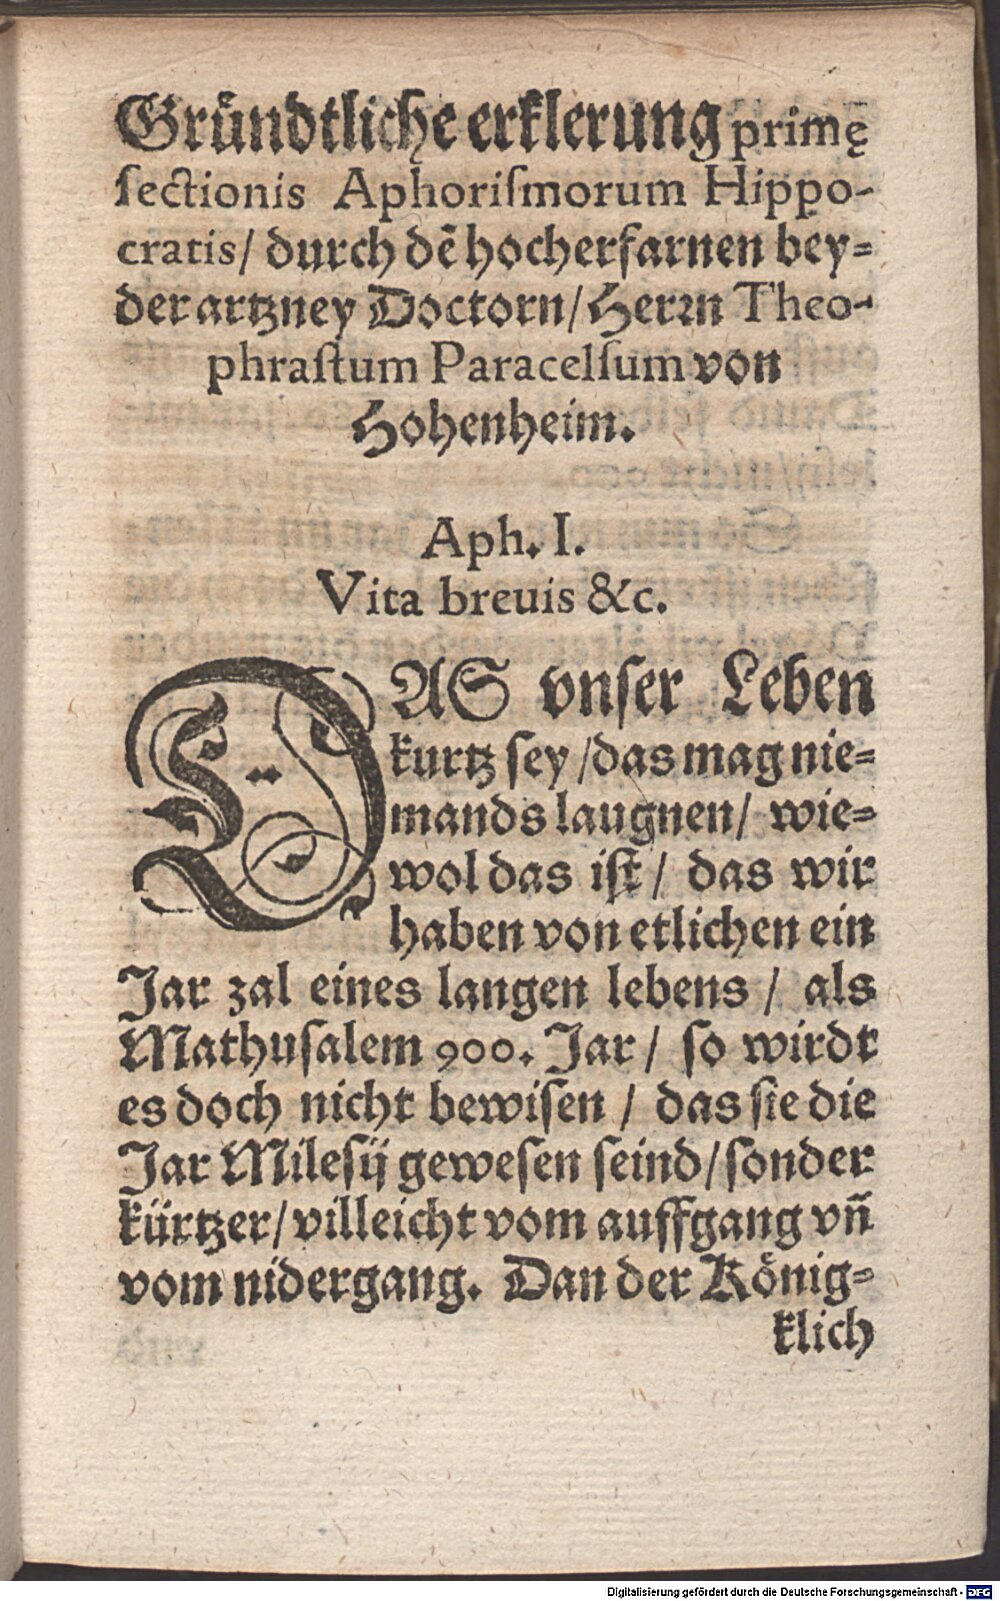 Gründtliche erklerung primę
ſectionis Aphoriſmorum Hippo-
cratis/ durch dē hocherfarnen bey-
der artzney Doctorn/ Herrn Theo-
phraſtum Paracelſum von
Hohenheim.
Aph. I.
Vita breuis &c.
DAS vnſer Leben
kurtz ſey/ das mag nie-
mands laugnen/ wie-
wol das iſt/ das wir
haben von etlichen ein
Jar zal eines langen lebens/ als
Mathuſalem 900. Jar/ ſo wirdt
es doch nicht bewiſen/ das ſie die
Jar Mileſij geweſen ſeind/ ſonder
kürtzer/ villeicht vom auffgang vñ
vom nidergang. Dan der König-
klich
Digitalisierung gefördert durch die Deutsche Forschungsgemeinschaft - DFG